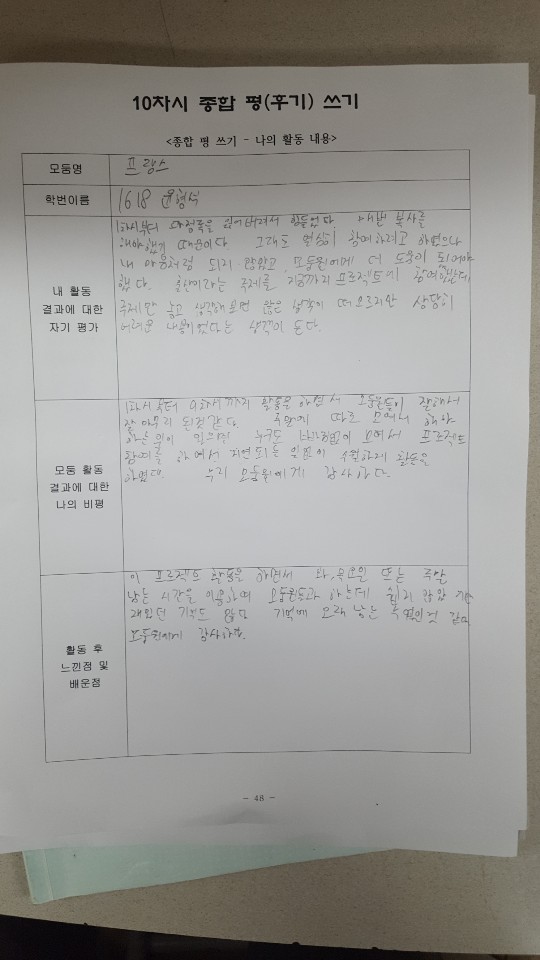 10차시 종합 평(후기) 쓰기
<종합 평 쓰기 - 나의 활동 내용>
모둠명
프랑스
학번이름
1618 윤형식
내 활동
결과에 대한
자기 평가
1차시부터 과정록을 잃어버려서 힘들었다 매번 복사를
해야했기 때문이다 그래도 열심히 참여하려고 하였으나
내 마음처럼 되지 않았고 모둠원에게 더 도움이 되어야
했다. 출산이라는 주제를 지금까지 프로젝트에 참여
주제만 놓고 생각해보면 많은 생각이 떠오르지만 상당히
어려운 내용이었다는 생각이 든다.
모둠 활동
결과에 대한
나의 비평
1차시부터 9차시까지 활동을 하면서 모둠원들이 잘해서
잘 마무리 된것 같다. 주말에 따로 모여서 해야
하는 일이 있으면 누구도 빠짐없이 모여서 프로젝트
참여를 하여서 지연되는 일없이 수월하게 활동을
하였다. 우리 모둠원에게 감사하다.
활동 후
느낀점 및
배운점
이 프로젝트 활동을 하면서 화,목요일 또는 주말
남는 시간을 이용하여 모둠원들과 하는데 쉽지 않았지만
재밌던 기억도 많다 기억에 오래 남는 것 같다
모둠원에게 감사하다.
- 48 -